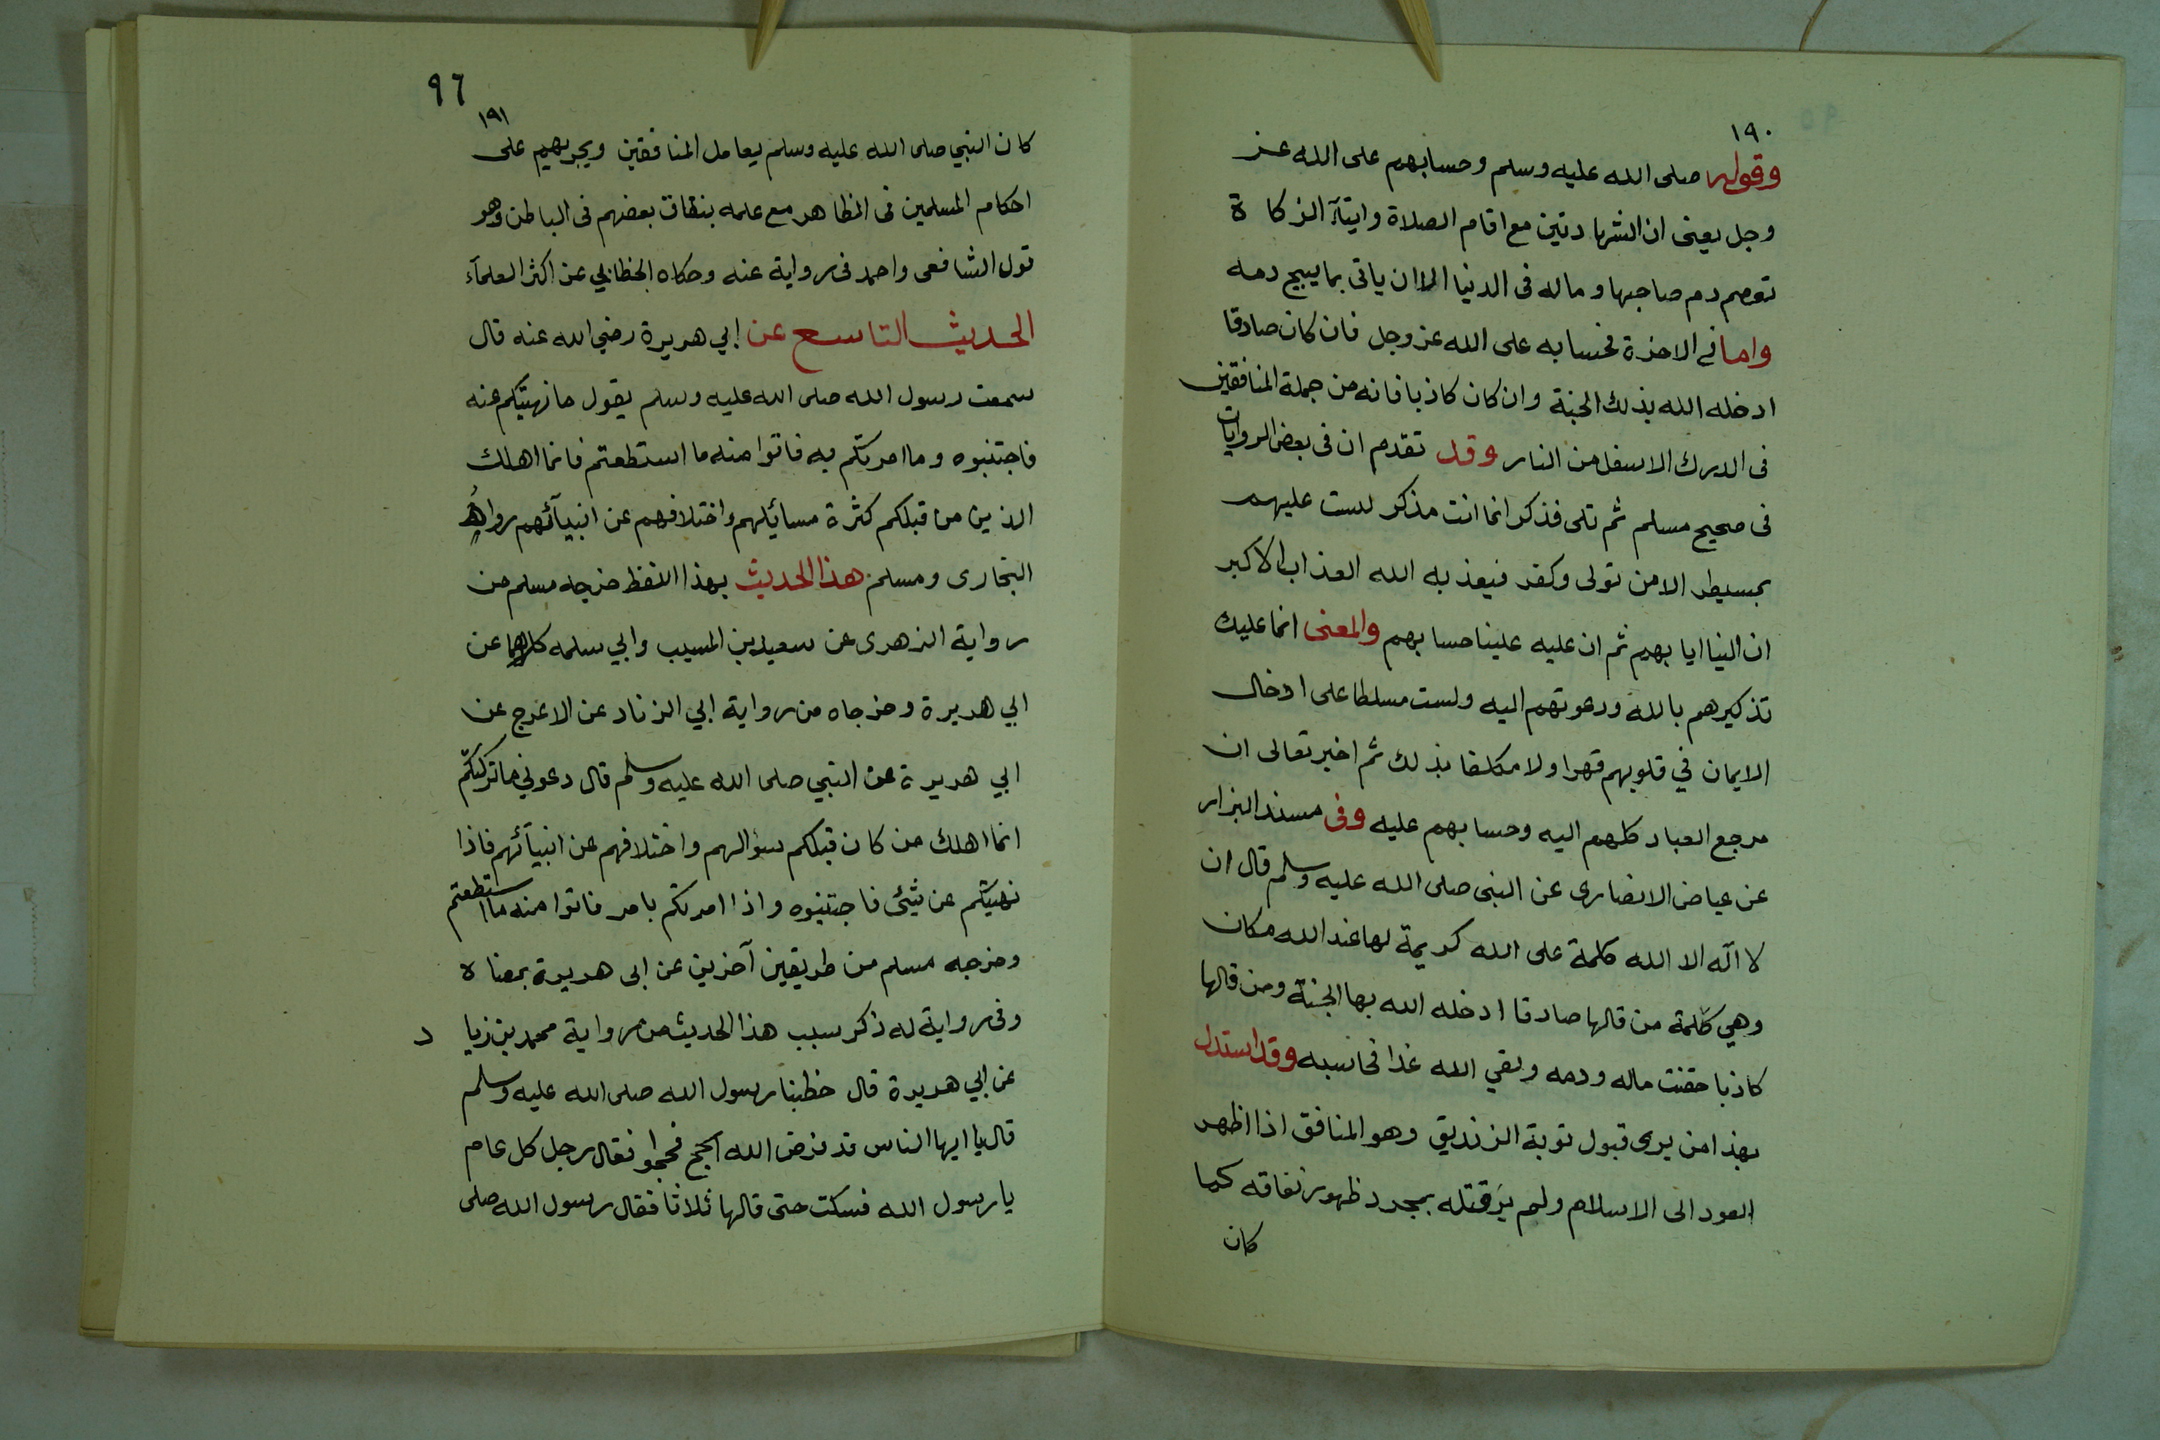 ١٩٠
وقوله صلى الله عليه وسلم وحسابهم على الله عز
وجل يعنى ان الشهادتين مع اقام الصلاة وايتآء الزكاة
تعصم دم صاحبها وماله فى الدنيا الا ان ياتى بما يبيح دمه
واما في الاخرة فحسابه على الله عز وجل فان كان صادقا
ادخله الله بذلك الجنة وان كان كاذبا فانه من جملة المنافقين
فى الدرك الاسفل من النار وقد تقدم ان فى بعض الروايات
فى صحيح مسلم ثم تلى فذكر انما انت مذكر لست عليهم
بمسيطر الا من تولى وكفر فيعذبه الله العذاب الاكبر
ان الينا ايابهم ثم ان عليه علينا حسابهم والمعنى انما عليك
تذكيرهم بالله ودعوتهم اليه ولست مسلطا على ادخال
الايمان في قلوبهم قهرا ولا مكلفا بذلك ثم اخبر تعالى ان
مرجع العباد كلهم اليه وحسابهم عليه وفى مسند البزار
عن عياض الانصارى عن النبى صلى الله عليه وسلم قال ان
لا اله الا الله كلمة على الله كريمة لها عند الله مكان
وهي كلمة من قالها صادقا ادخله الله بها الجنة ومن قالها
كاذبا حقنت ماله ودمه ولقي الله غدا فحاسبه وقد استدل
بهذا من يرى قبول توبة الزنديق وهو المنافق اذا اظهر
العود الى الاسلام ولم ير قتله بمجرد ظهور نفاقه كما
كان
٩٦
١٩١
كان النبي صلى الله عليه وسلم يعامل المنافقين ويجريهم على
احكام المسلمين فى الظاهر مع علمه بنفاق بعضهم فى الباطن وهو
قول الشافعى واحمد فى رواية عنه وحكاه الخطابي عن اكثر العلمآء
الحديث التاسع عن ابي هريرة رضي الله عنه قال
سمعت رسول الله صلى الله عليه وسلم يقول ما نهيتكم عنه
فاجتنبوه وما امرتكم به فاتوا منه ما استطعتم فانما اهلك
الذين من قبلكم كثرة مسائلهم واختلافهم عن انبيآئهم رواه
البخارى ومسلم هذا الحديث بهذا اللفظ خرجه مسلم من
رواية الزهرى عن سعيد بن المسيب وابي سلمه كلاهما عن
ابي هريرة وخرجاه من رواية ابي الزناد عن الاعرج عن
ابي هريرة عن النبي صلى الله عليه وسلم قال دعوني ما تركتكم
انما اهلك من كان قبلكم سؤالهم واختلافهم عن انبيآئهم فاذا
نهيتكم عن شئ فاجتنبوه واذا امرتكم بامر فاتوا منه ما استطعتم
وخرجه مسلم من طريقين آخرين عن ابى هريرة بمعناه
وفى رواية له ذكر سبب هذا الحديث من رواية محمد بن زياد
عن ابي هريرة قال خطبنا رسول الله صلى الله عليه وسلم
قال يا ايها الناس قد فرض الله الحج فحجوا فقال رجل كل عام
يا رسول الله فسكت حتى قالها ثلاثا فقال رسول الله صلى